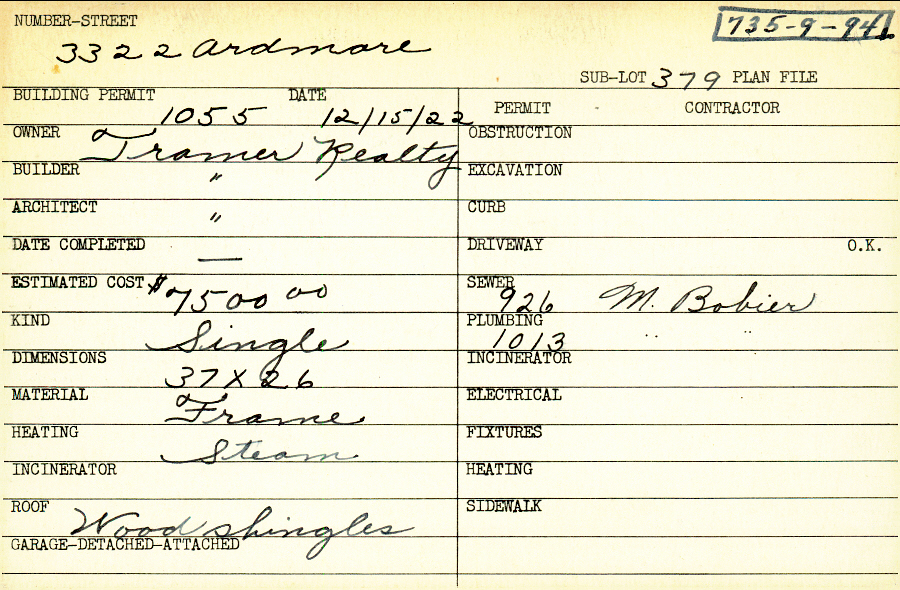 NUMBER-STREET
3322 Ardmore
735-9-94
SUB-LOT 379 PLAN FILE
BUILDING PERMIT 1055 DATE 12/15/22
OWNER Tramer Realty
BUILDER "
ARCHITECT "
DATE COMPLETED —
ESTIMATED COST $7500 00
KIND Single
DIMENSIONS 37 X 26
MATERIAL Frame
HEATING Steam
INCINERATOR
ROOF Wood shingles
GARAGE-DETACHED-ATTACHED
PERMIT CONTRACTOR
OBSTRUCTION
EXCAVATION
CURB
DRIVEWAY O.K.
SEWER 926 M. Bobier
PLUMBING 1013 " "
INCINERATOR
ELECTRICAL
FIXTURES
HEATING
SIDEWALK